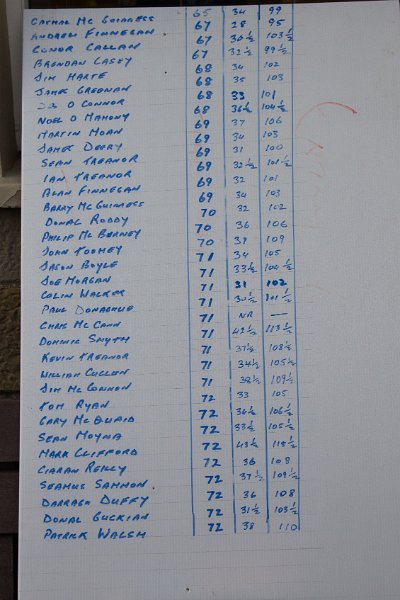 CATHAL MC GUINNESS 65 34 99
ANDREW FINNEGAN 67 28 95
CONOR CALLAN 67 36½ 103½
BRENDAN CASEY 67 32½ 99½
JIM HARTE 68 34 102
JAMES GREENAN 68 35 103
O CONNOR 68 33 101
NOEL O MAHONY 68 36½ 104½
MARTIN HORAN 69 37 106
JAMES DEERY 69 34 103
SEAN TREANOR 69 31 100
IAN TREANOR 69 32½ 101½
ALAN FINNEGAN 69 32 101
BARRY MC GUINNESS 69 34 103
DONAL RODDY 70 32 102
PHILIP MC BERNEY 70 36 106
JOHN TOOMEY 70 39 109
JASON BOYLE 71 34 105
JOE MORGAN 71 33½ 104½
COLIN WALKER 71 31 102
PAUL DONAGHUE 71 30½ 101½
CHRIS MC CANN 71 NR —
DOMINIC SMYTH 71 42½ 113½
KEVIN TREANOR 71 37½ 108½
WILLIAM CULLEN 71 34½ 105½
JIM MC CONNON 71 38½ 109½
TOM RYAN 72 33 105
GARY MC QUAID 72 34½ 106½
SEAN MOYNA 72 33½ 105½
MARK CLIFFORD 72 43½ 115½
CIARAN REILLY 72 36 108
SEAMUS SAMMON 72 37½ 109½
DARRAGH DUFFY 72 36 108
DONAL GUCKIAN 72 31½ 103½
PATRICK WALSH 72 38 110